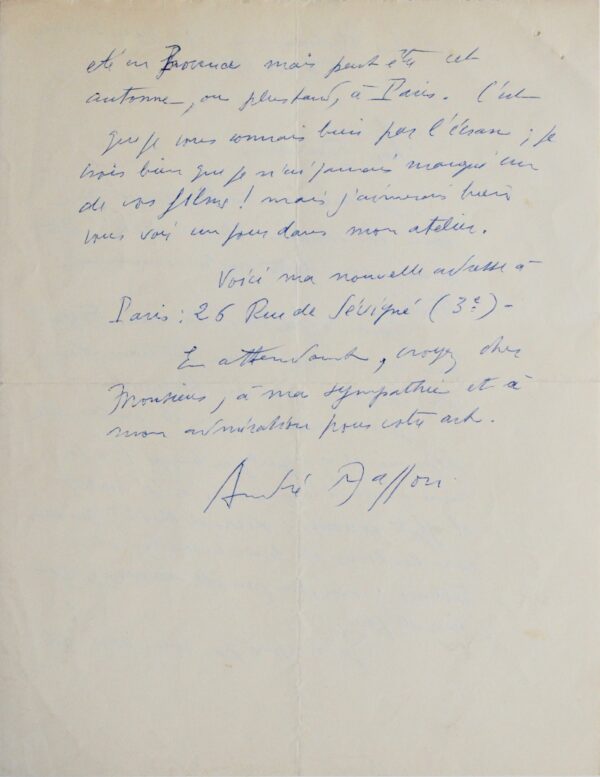 été en Provence mais peut être cet
automne, ou plus tard, à Paris. C'est
que je vous connais bien par l'écran ; je
crois bien que je n'ai jamais manqué un
de vos films ! mais j'aimerais bien
vous voir un jour dans mon atelier.
Voici ma nouvelle adresse à
Paris : 26 Rue de Sévigné (3e) -
En attendant, croyez cher
Monsieur, à ma sympathie et à
mon admiration pour votre art.
André Masson